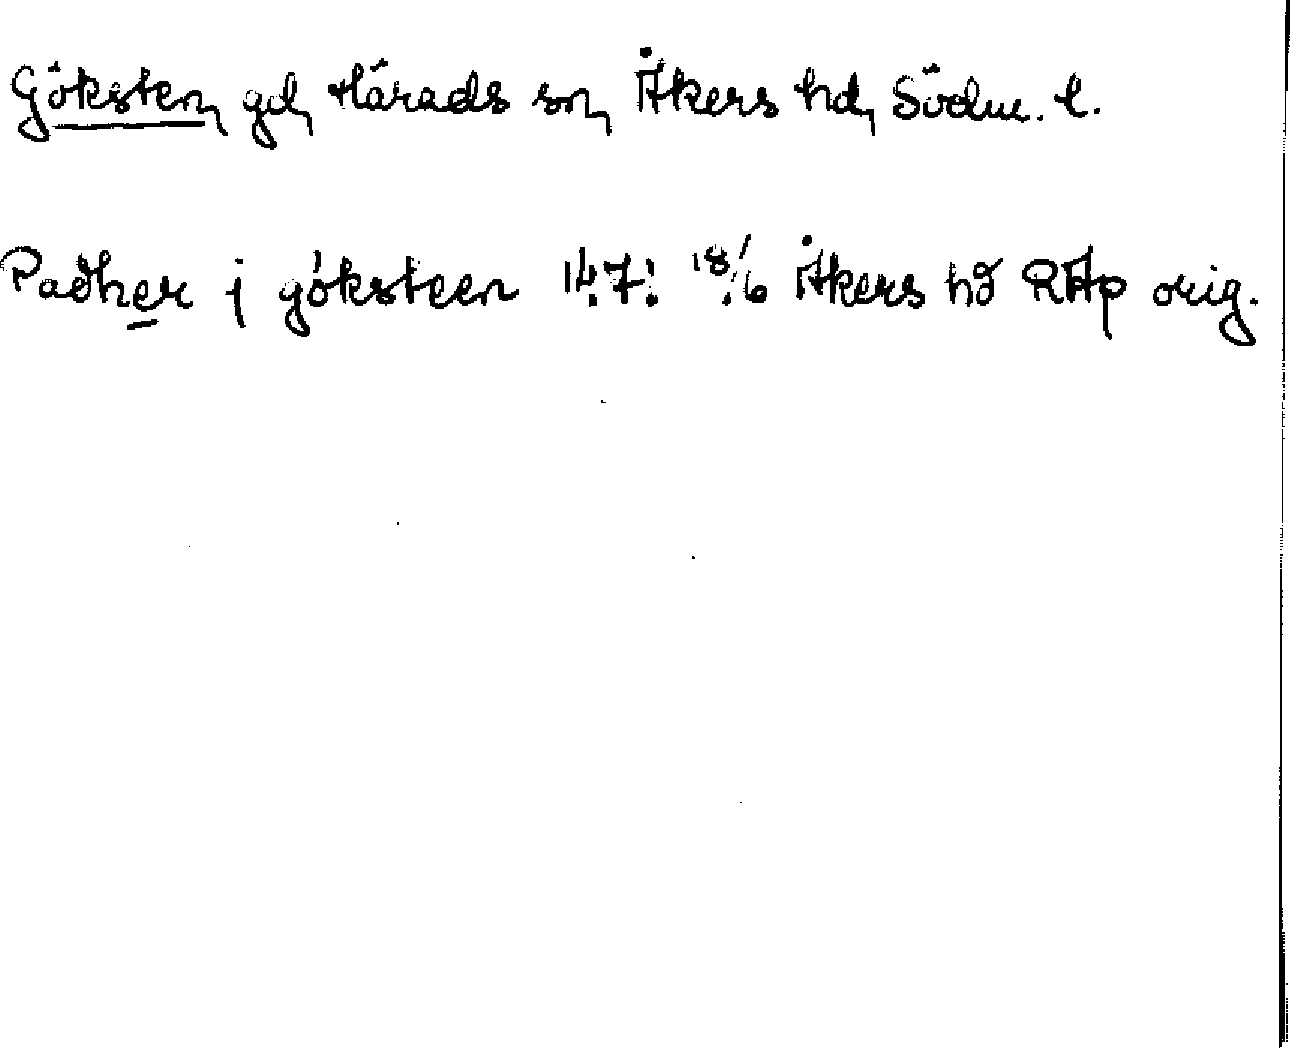 Göksten, gd, Härads sn, Åkers hd, Södm. l.
Padher j göksteen 1471 18/6 Åkers hd RAp orig.